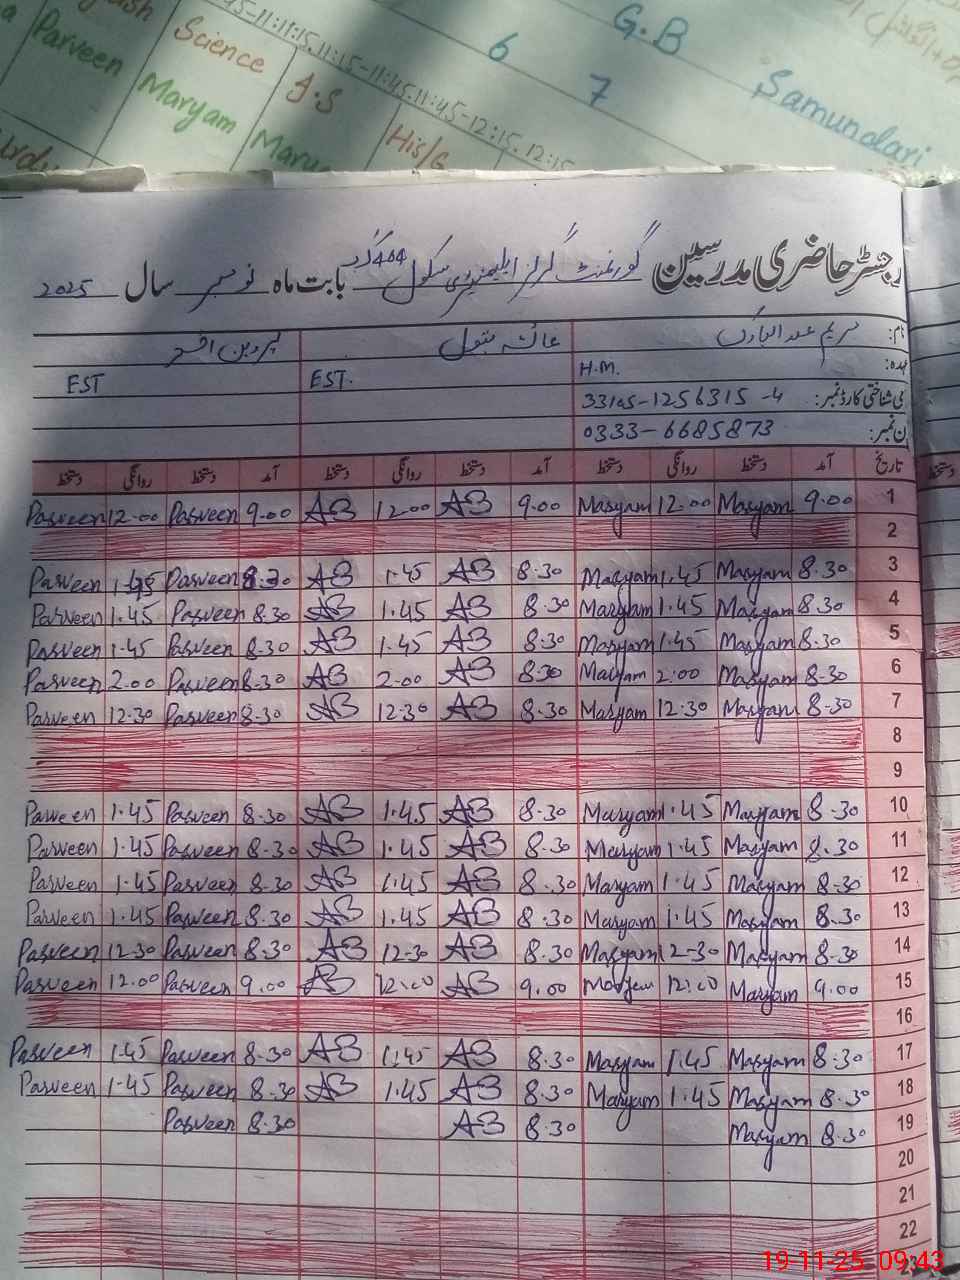 Parveen Science 45-11:15, 11:15-11:45, 11:45-12:15, 12:15 G.B
Maryam J.S His/G 6 7 Samundari
رجسٹر حاضری مدرسین گورنمنٹ گرلز ایلیمنٹری سکول 464 گ ب بابت ماہ نومبر سال 2025
نام: مریم عائشہ بتول پروین اختر
عہدہ: H.M. EST. EST
شناختی کارڈ نمبر:
ن نمبر: 0333-6685873
تاریخ آمد دستخط روانگی دستخط آمد دستخط روانگی دستخط آمد دستخط روانگی دستخط
1 9.00 Maryam 12.00 Maryam 9.00 AB 12.00 AB 9.00 Parveen 12.00 Parveen
2
3 8.30 Maryam 1.45 Maryam 8.30 AB 1.45 AB 8.30 Parveen 1.45 Parveen
4 8.30 Maryam 1.45 Maryam 8.30 AB 1.45 AB 8.30 Parveen 1.45 Parveen
5 8.30 Maryam 1.45 Maryam 8.30 AB 1.45 AB 8.30 Parveen 1.45 Parveen
6 8.30 Maryam 2.00 Maryam 8.30 AB 2.00 AB 8.30 Parveen 2.00 Parveen
7 8.30 Maryam 12.30 Maryam 8.30 AB 12.30 AB 8.30 Parveen 12.30 Parveen
8
9
10 8.30 Maryam 1.45 Maryam 8.30 AB 1.45 AB 8.30 Parveen 1.45 Parveen
11 8.30 Maryam 1.45 Maryam 8.30 AB 1.45 AB 8.30 Parveen 1.45 Parveen
12 8.30 Maryam 1.45 Maryam 8.30 AB 1.45 AB 8.30 Parveen 1.45 Parveen
13 8.30 Maryam 1.45 Maryam 8.30 AB 1.45 AB 8.30 Parveen 1.45 Parveen
14 8.30 Maryam 12.30 Maryam 8.30 AB 12.30 AB 8.30 Parveen 12.30 Parveen
15 9.00 Maryam 12:00 Maryam 9.00 AB 12:00 AB 9.00 Parveen 12.00 Parveen
16
17 8.30 Maryam 1.45 Maryam 8.30 AB 1.45 AB 8.30 Parveen 1.45 Parveen
18 8.30 Maryam 1.45 Maryam 8.30 AB 1.45 AB 8.30 Parveen 1.45 Parveen
19 8.30 Maryam 8.30 AB 8.30 Parveen
20
21
22
23
19-11-25 09:43